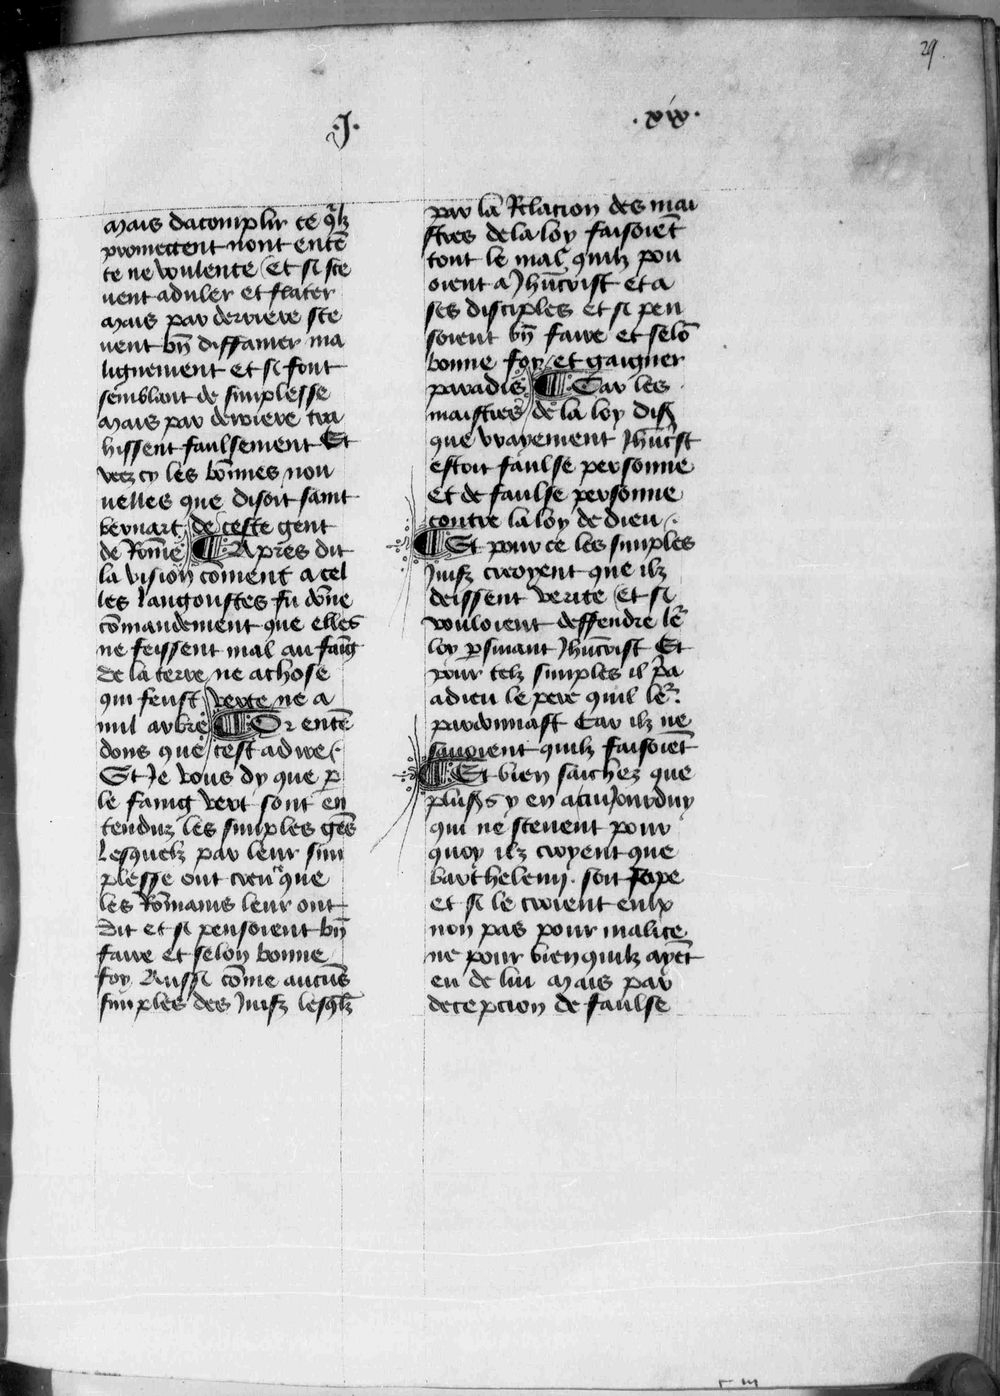 29
.J.
.xix.
mais dacomplir ce q̃lz
promectent nont entẽ
te ne voulente Et si sce
uent aduler et flater
mais par derriere sce
uent bñ diffamer ma
lignement et si font
semblant de simplesse
mais par derriere tra
hissent faulsement Et
veez cy les bõnes nou
uelles que disoit saint
bernart de ceste gent
de Rõme ¶ Apres dit
la vision cõment a cel
les langoustes fu dõne
cõmandement que elles
ne feissent mal au faing
de la terre ne a chose
qui feust verte ne a
nul arbre ¶ Or entẽ
dons que cest a dire
Et Je vous dy que p̱
le faing vert sont en
tenduz les simples gẽs
Lesquelz par leur sim
plesse ont creu que
les Rõmains leur ont
dit et si pensoient bñ
faire et selon bonne
foy Aussi cõme aucũs
simples des Juifz lesq̃lz
par la Relacion des mai
stres de la loy faisoiẽt
tout le mal quilz pou
oient a Jhũcrist et a
ses disciples et si pen
soient bñ faire et selõ
bonne foy et gaigner
paradis ¶ Car les
maistres de la loy disoi
que vrayement Jhũcst
estoit faulse personne
et de faulse personne
contre la loy de dieu
¶ Et pour ce les simples
Juifz croyent que ilz
deissent verite Et si
vouloient deffendre le2
loy p̱siuant Jhũcrist Et
pour telz simples il p̃a
a dieu le pere quil le2
pardonnast Car ilz ne
sauoient quilz faisoiẽt
¶ Et bien saichez que
plus̃rs y en a auJourduy
qui ne sceuent pour
quoy ilz croyent que
barthelemy soit Pape
et si le croient eulx
non pas pour malice
ne pour bien quilz ayẽt
en de lui mais par
decepcion de faulse